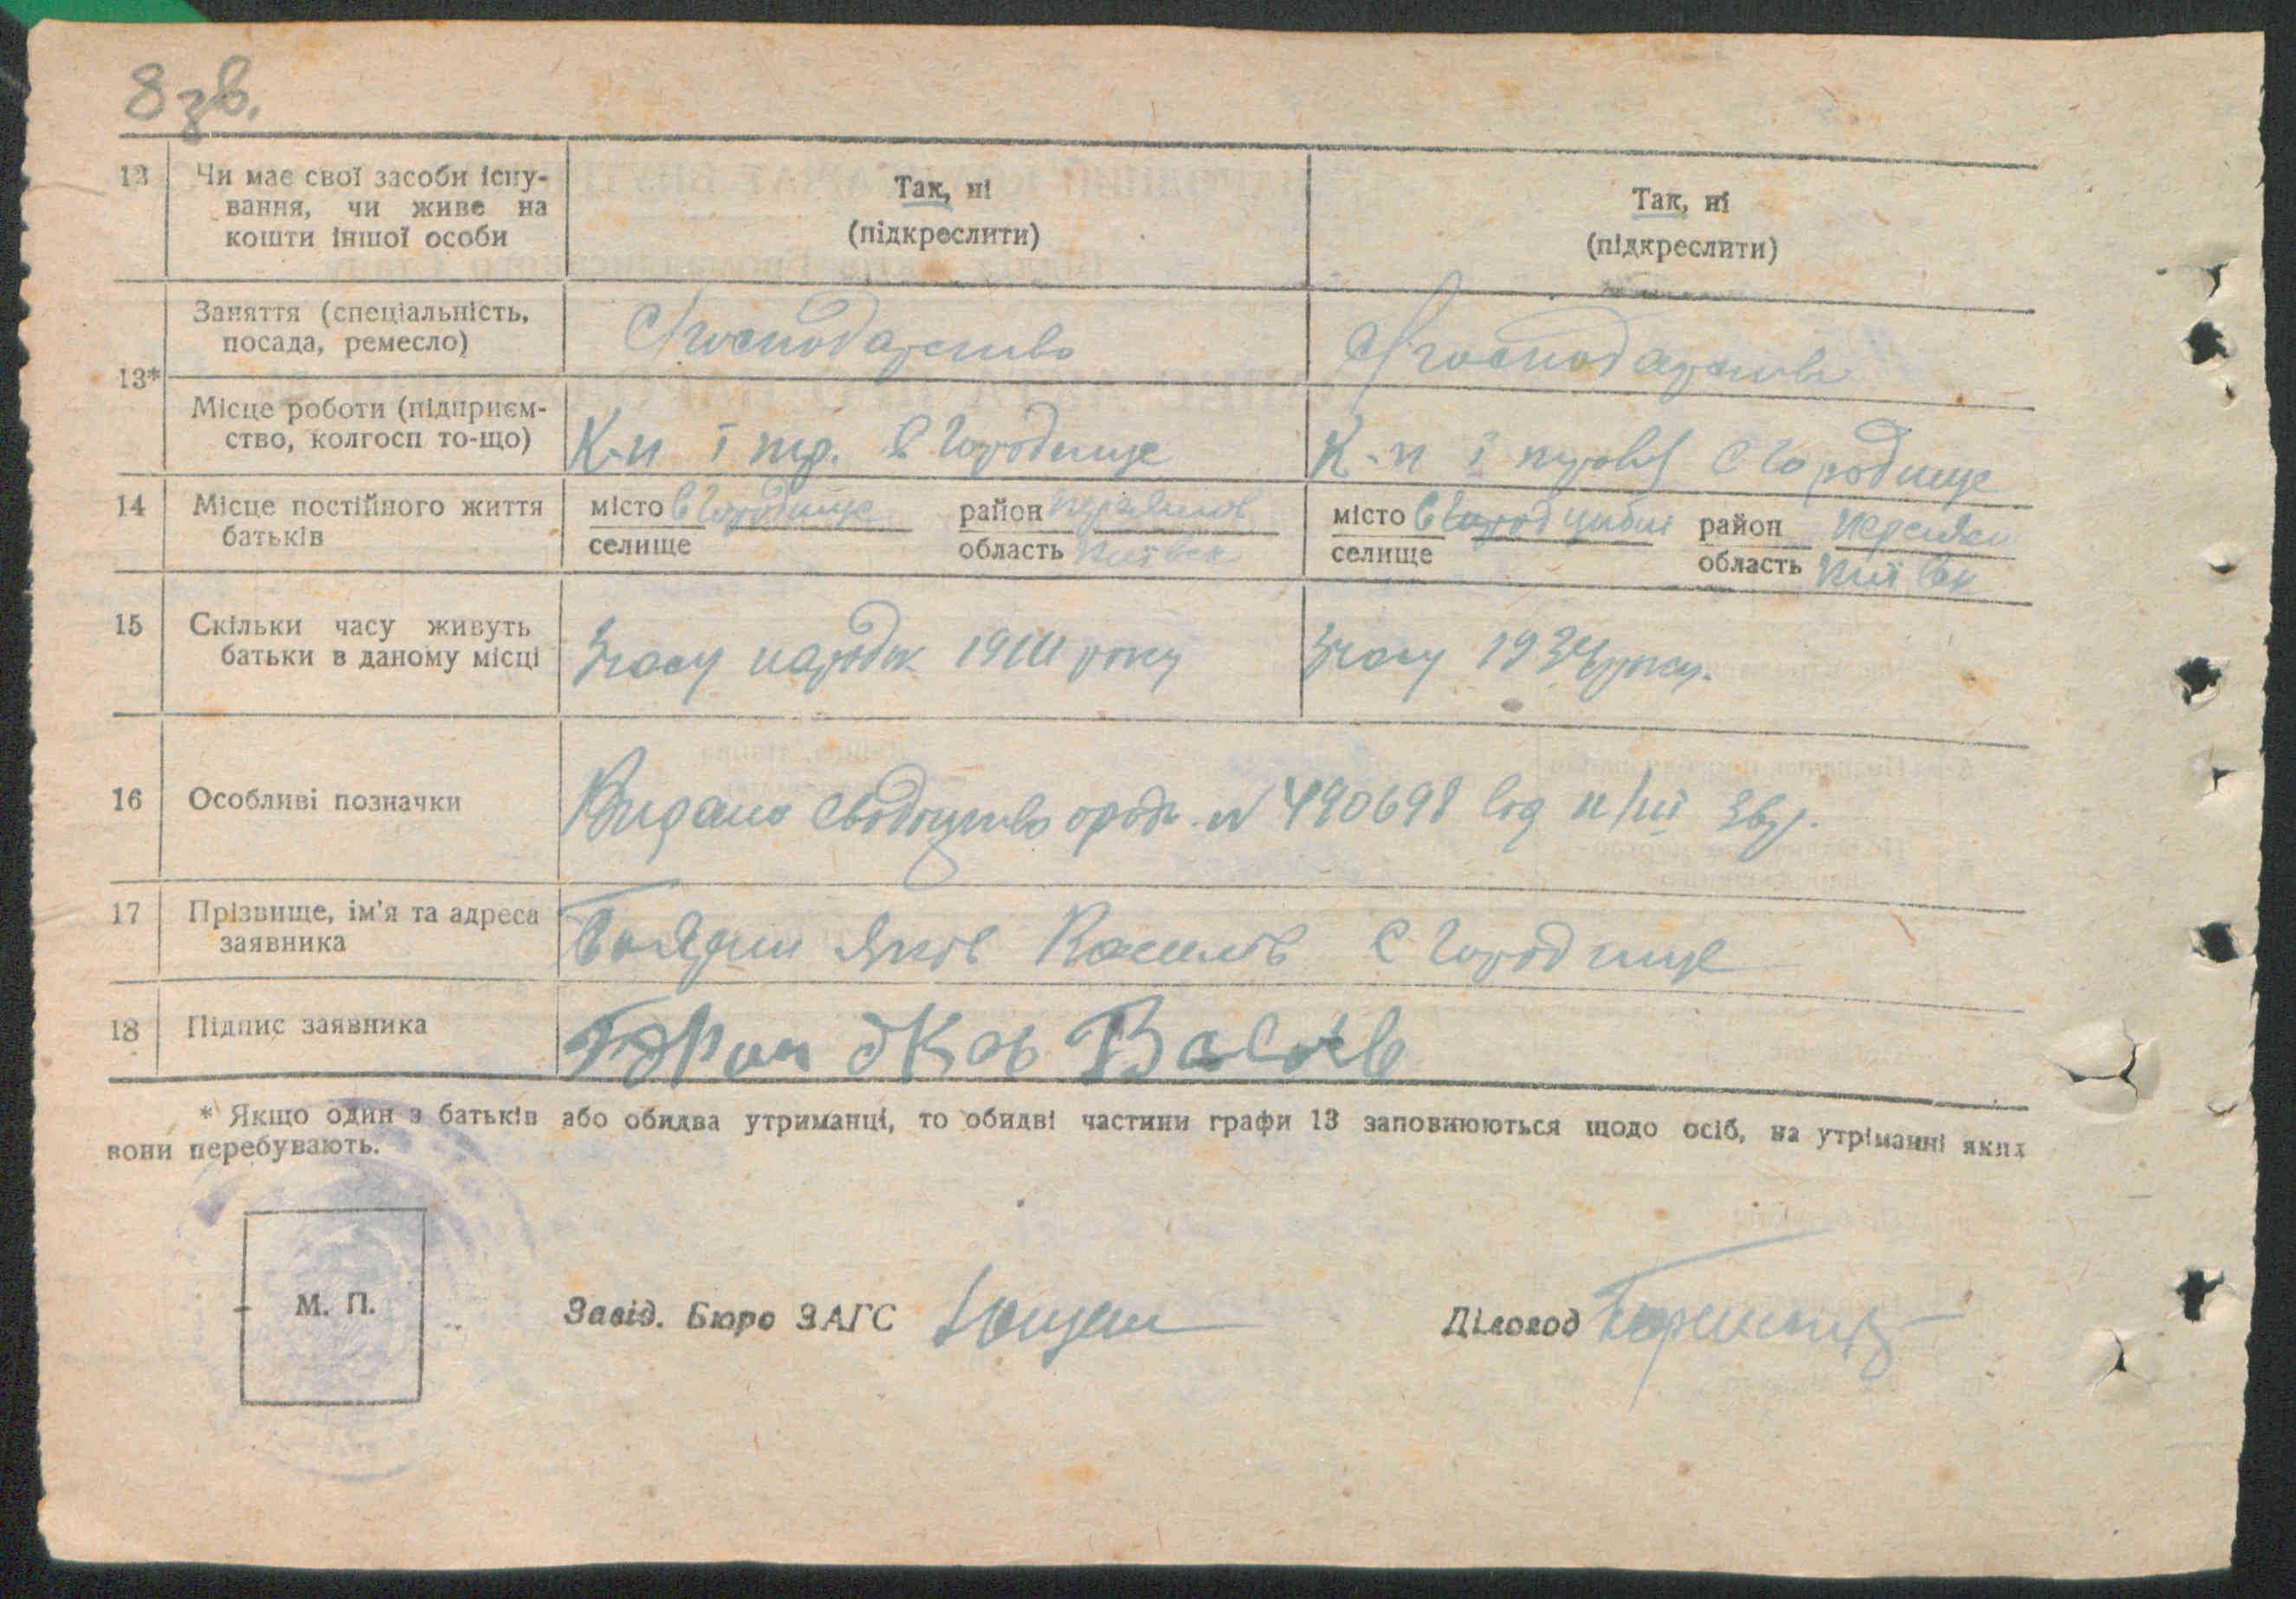 8 зв.
12 Чи має свої засоби існу-
вання, чи живе на
кошти іншої особи
Так, ні
(підкреслити)
Так, ні
(підкреслити)
13*
Заняття (спеціальність,
посада, ремесло)
С/господарство
С/господарство
Місце роботи (підприєм-
ство, колгосп то-що)
К-п І тр. С Городище
К-п І С Городище
14 Місце постійного життя
батьків
місто С Городище район
селище область Київськ
місто С район
селище область Київськ
15 Скільки часу живуть
батьки в даному місці
Зчасу народж 1911 року
Зчасу 1934 року.
16 Особливі позначки
Видано свідоцтво № 490698 від
17 Прізвище, ім'я та адреса
заявника
Яків С Городище
18 Підпис заявника
* Якщо один з батьків або обидва утриманці, то обидві частини графи 13 заповнюються щодо осіб, на утріманні яких
вони перебувають.
М. П.
Завід. Бюро ЗАГС
Діловод